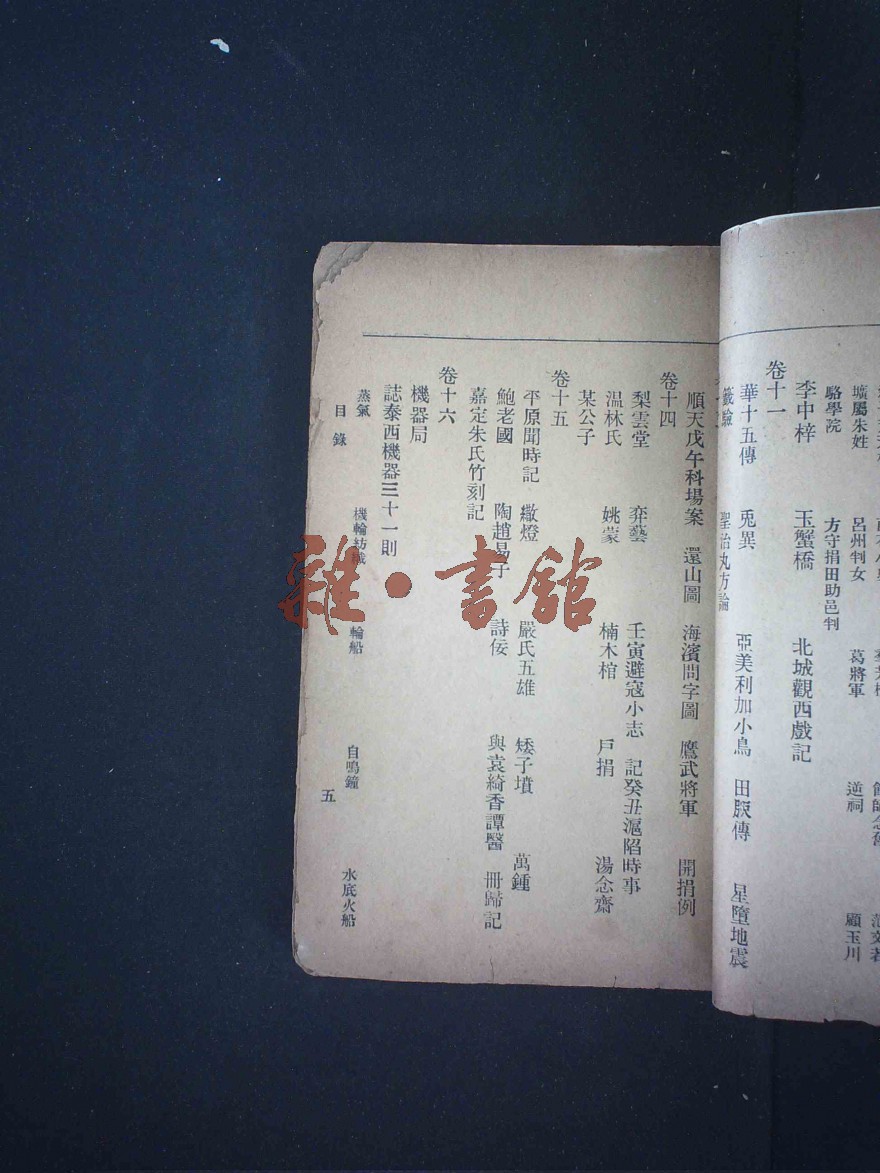 壙屬朱姓 呂州判女 葛將軍 逆祠 顧玉川
駱學院 方守捐田助邑判
李中梓 玉蟹橋 北城觀西戲記
卷十一
華十五傳 兎異 亞美利加小鳥 田脮傳 星墮地震
籤驗 聖治丸方論
順天戊午科場案 還山圖 海濱問字圖 鷹武將軍 開捐例
卷十四
梨雲堂 弈藝 壬寅避寇小志 記癸丑滬陷時事
温林氏 姚蒙 楠木棺 戶捐 湯念齋
某公子
卷十五
平原聞時記 繖燈 嚴氏五雄 矮子墳 萬鍾
鮑老國 陶趙易子 詩佞 與袁綺香譚醫 冊歸記
嘉定朱氏竹刻記
卷十六
機器局
誌泰西機器三十一則
蒸氣 機輪紡織 輪船 自鳴鐘 水底火船
目錄 五
雜·書館